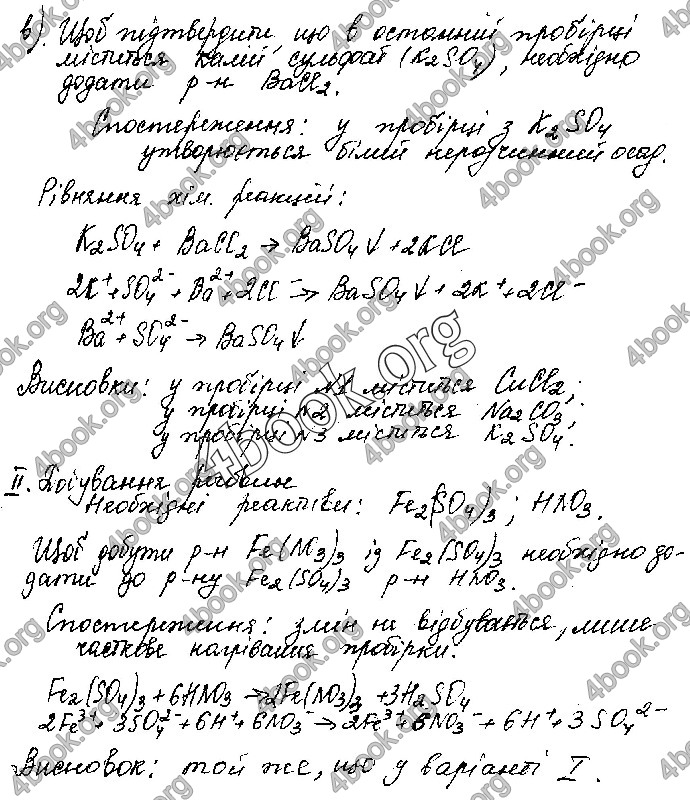 в). Щоб підтвердити що в останній пробірці
міститься калій сульфат (K2SO4), необхідно
додати р-н BaCl2.
Спостереження: у пробірці з K2SO4
утворюється білий нерозчинний осад.
Рівняння хім. реакцій:
K2SO4 + BaCl2 → BaSO4↓ + 2KCl
2K⁺+SO4²⁻ + Ba²⁺+2Cl⁻ → BaSO4↓ + 2K⁺ + 2Cl⁻
Ba²⁺ + SO4²⁻ → BaSO4↓
Висновки: у пробірці №1 міститься CuCl2;
у пробірці №2 міститься Na2CO3;
у пробірці №3 міститься K2SO4.
II. Добування речовин
Необхідні реактиви: Fe2(SO4)3; HNO3.
Щоб добути р-н Fe(NO3)3 із Fe2(SO4)3 необхідно до-
дати до р-ну Fe2(SO4)3 р-н HNO3.
Спостереження: змін не відбувається, лише
часткове нагрівання пробірки.
Fe2(SO4)3 + 6HNO3 → 2Fe(NO3)3 + 3H2SO4
2Fe³⁺ + 3SO4²⁻ + 6H⁺ + 6NO3⁻ → 2Fe³⁺ + 6NO3⁻ + 6H⁺ + 3SO4²⁻
Висновок: той же, що у варіанті I.
4book.org